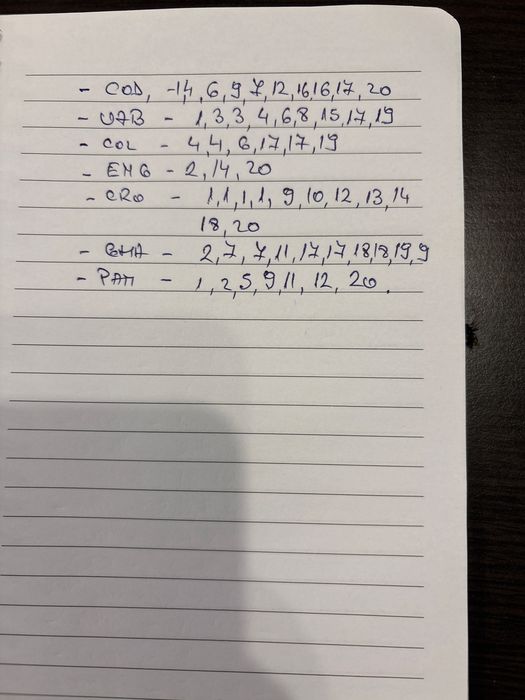 - COD, -1,4, 6, 9, 7, 12, 16, 16, 17, 20
- UZB - 1, 3, 3, 4, 6, 8, 15, 17, 19
- COL - 4, 4, 6, 17, 17, 19
- ENG - 2, 14, 20
- CRO - 1, 1, 1, 1, 9, 10, 12, 13, 14
18, 20
- GHA - 2, 7, 7, 11, 17, 17, 18, 18, 19, 9
- PAN - 1, 2, 5, 9, 11, 12, 20.